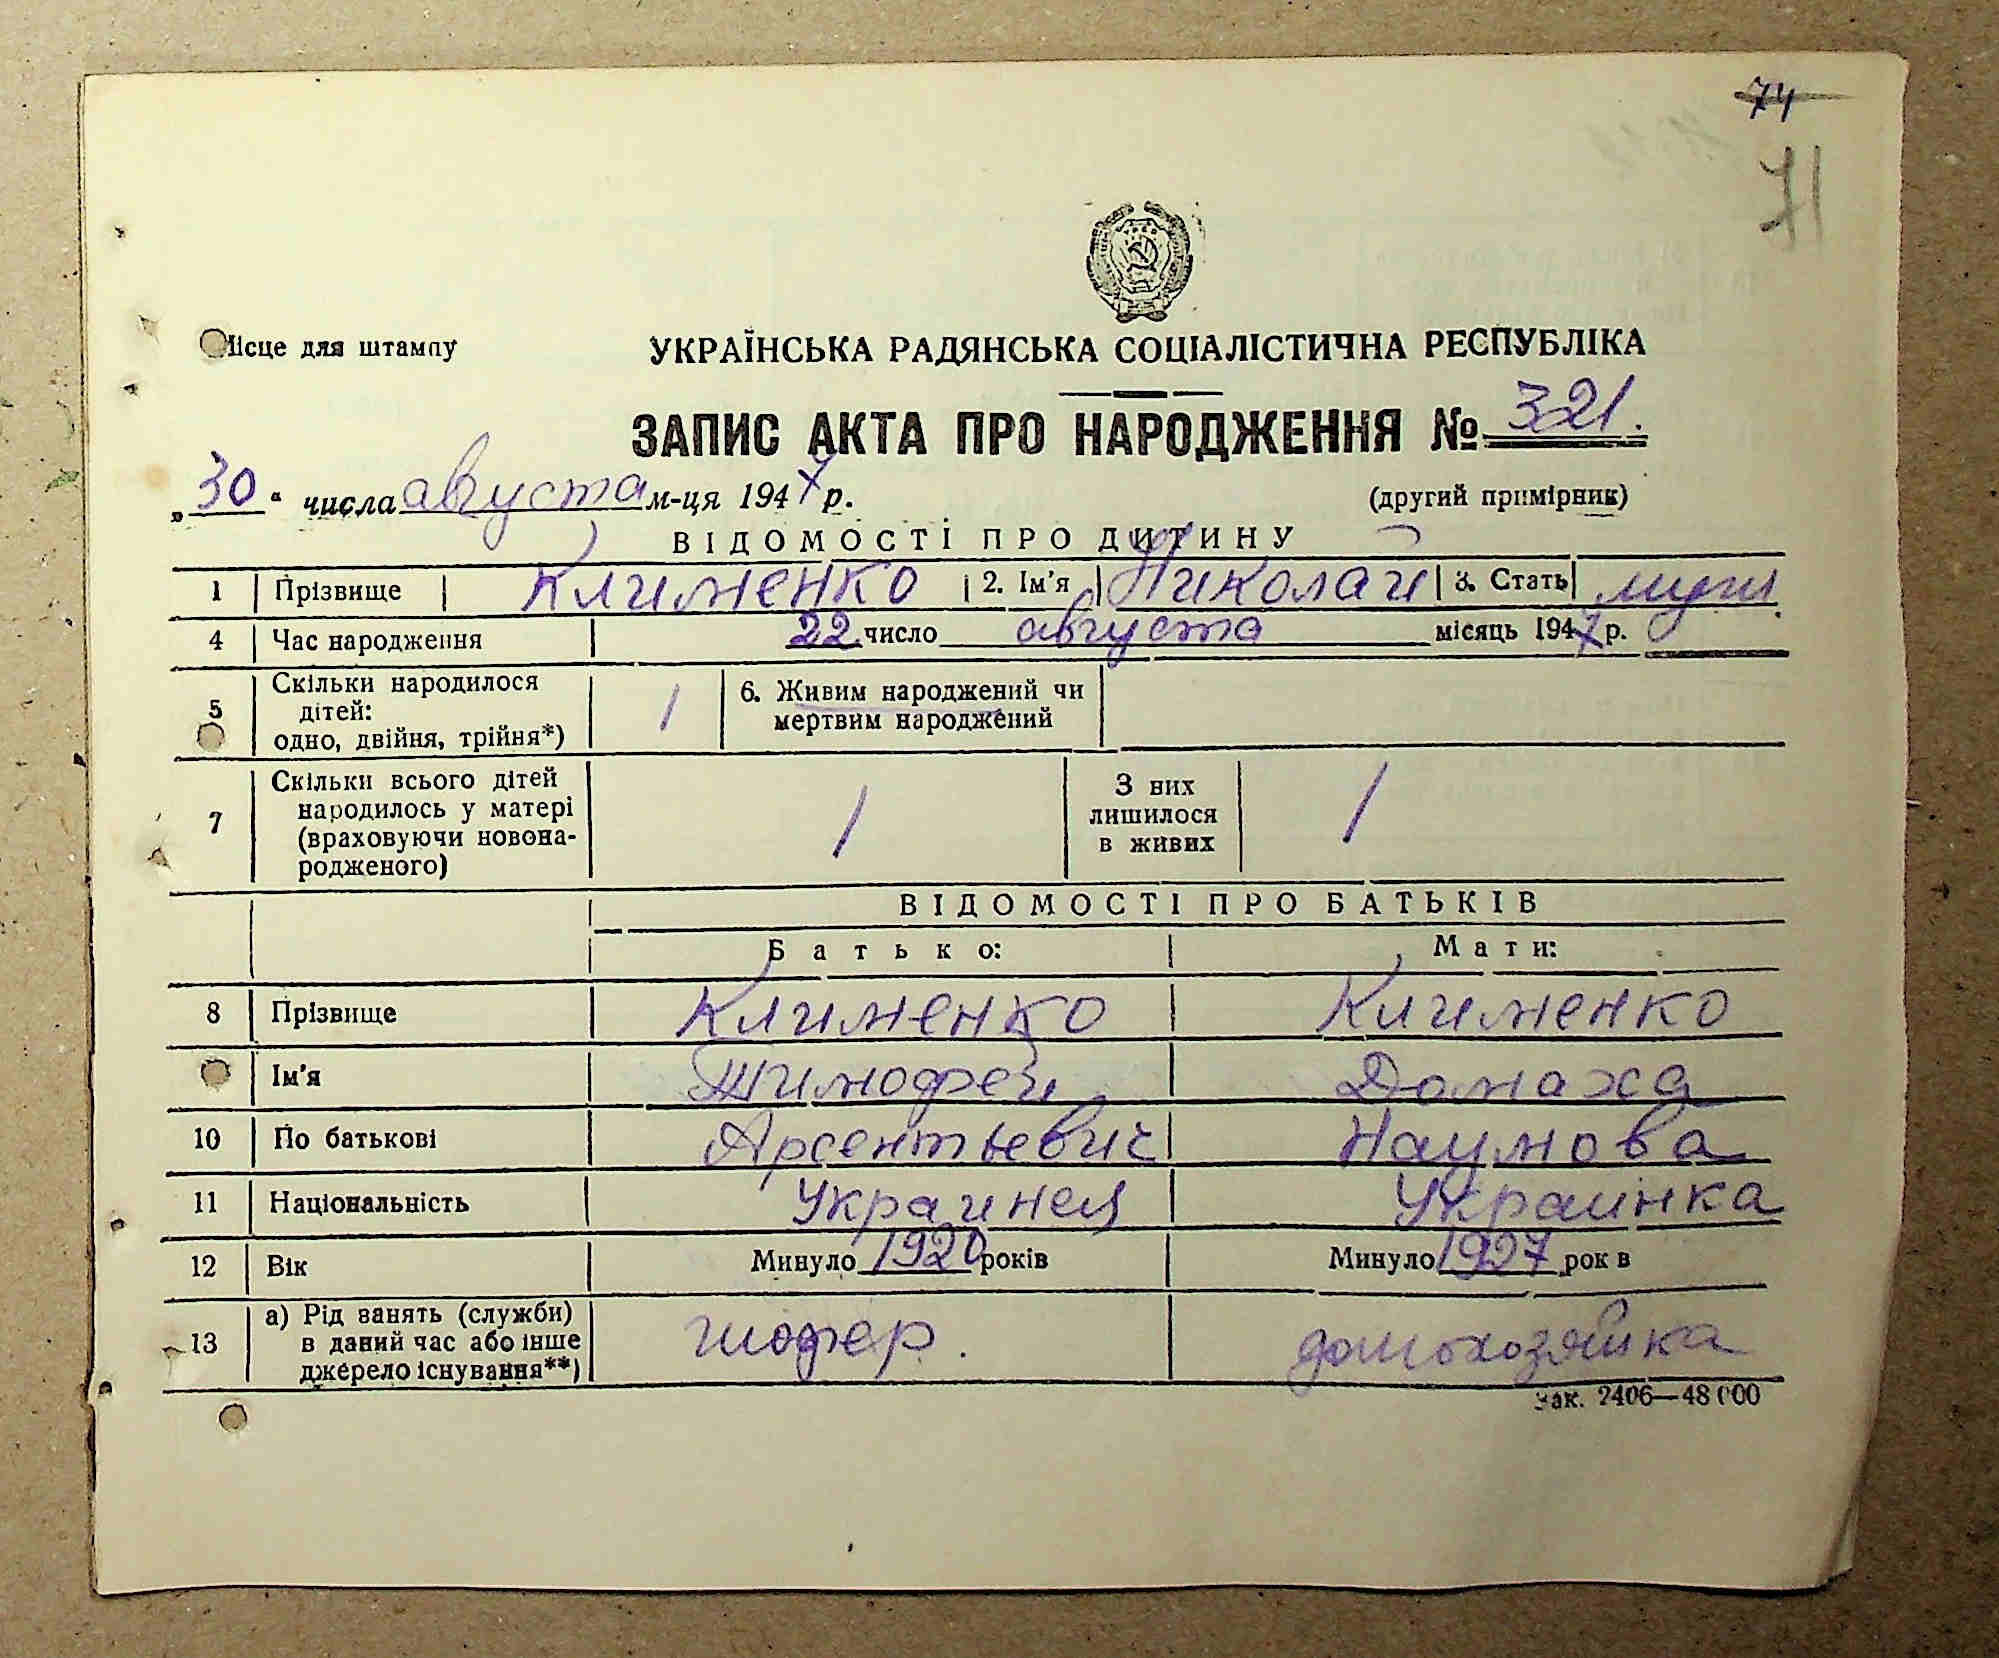 74
71
Місце для штампу
УКРАЇНСЬКА РАДЯНСЬКА СОЦІАЛІСТИЧНА РЕСПУБЛІКА
ЗАПИС АКТА ПРО НАРОДЖЕННЯ № 321.
„30“ числа августа м-ця 1947 р.
(другий примірник)
ВІДОМОСТІ ПРО ДИТИНУ
1 Прізвище Клименко 2. Ім'я Николай 3. Стать муж.
4 Час народження 22 число августа місяць 1947 р.
5 Скільки народилося дітей: одно, двійня, трійня*) 1 6. Живим народжений чи мертвим народжений
7 Скільки всього дітей народилось у матері (враховуючи новонародженого) 1 З них лишилося в живих 1
ВІДОМОСТІ ПРО БАТЬКІВ
Батько: Мати:
8 Прізвище Клименко Клименко
Ім'я Тимофей Домаха
10 По батькові Арсентьевич Наумова
11 Національність Украинец Украинка
12 Вік Минуло 1920 років Минуло 1927 рок в
13 а) Рід занять (служби) в даний час або інше джерело існування**) шофер. домохозяйка
Зак. 2406—48 000